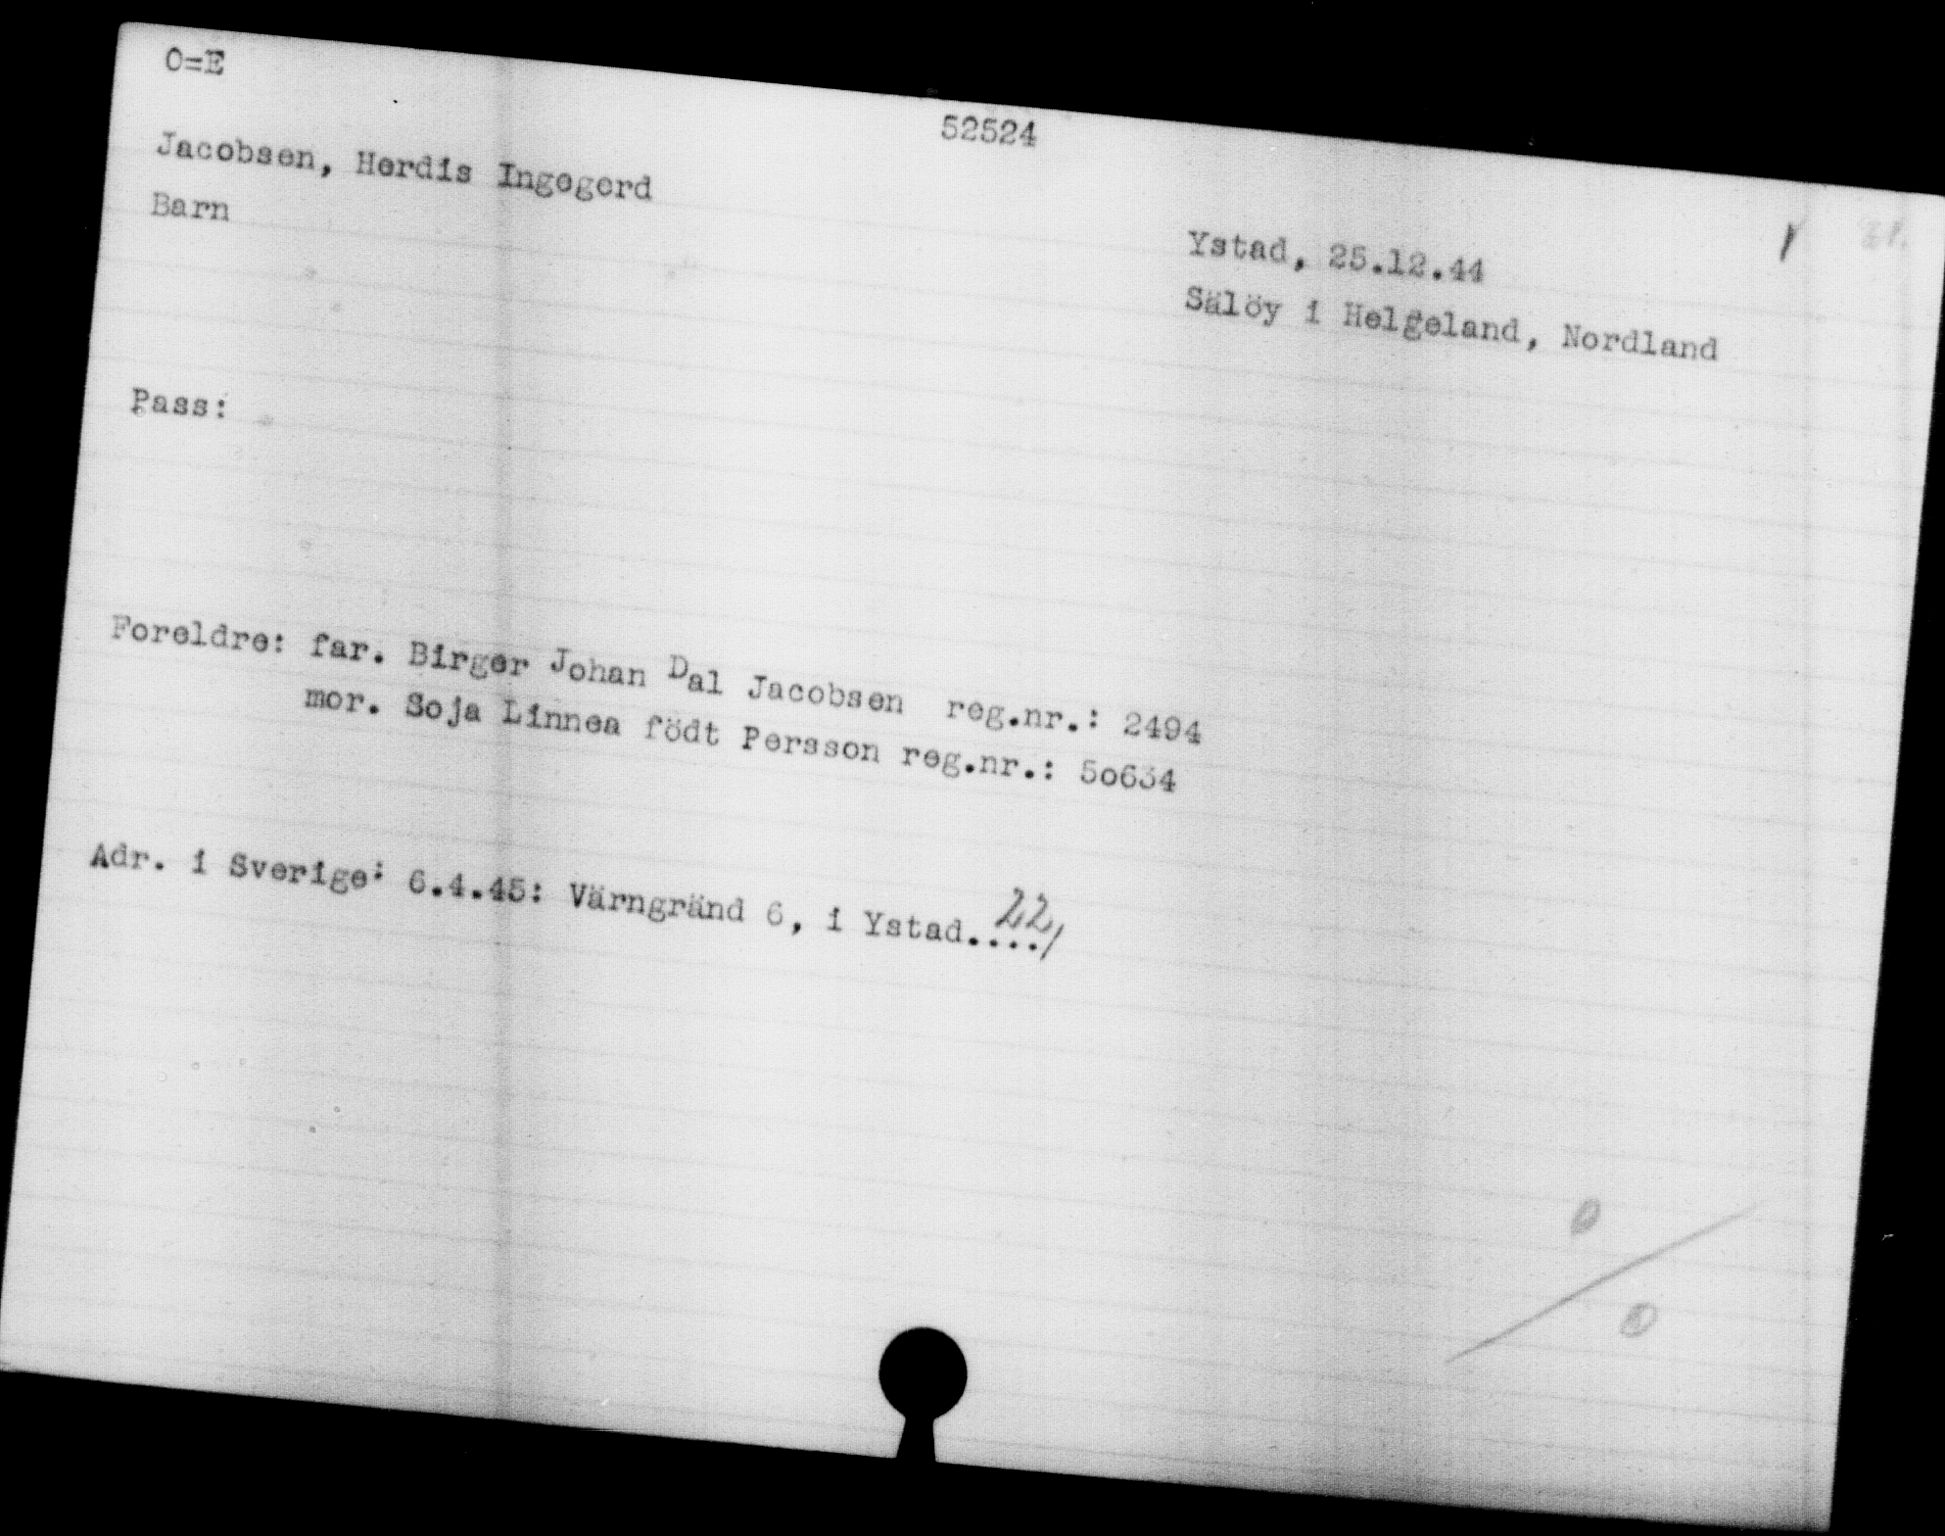 O=E
52524
Jacobsen, Herdis Ingegerd
Barn
Ystad, 25.12.44
Sälöy i Helgeland, Nordland
Pass:
Foreldre: far. Birger Johan Dal Jacobsen reg.nr.: 2494
mor. Soja Linnea födt Persson reg.nr.: 5o634
Adr. i Sverige: 6.4.45: Värngränd 6, i Ystad....22/